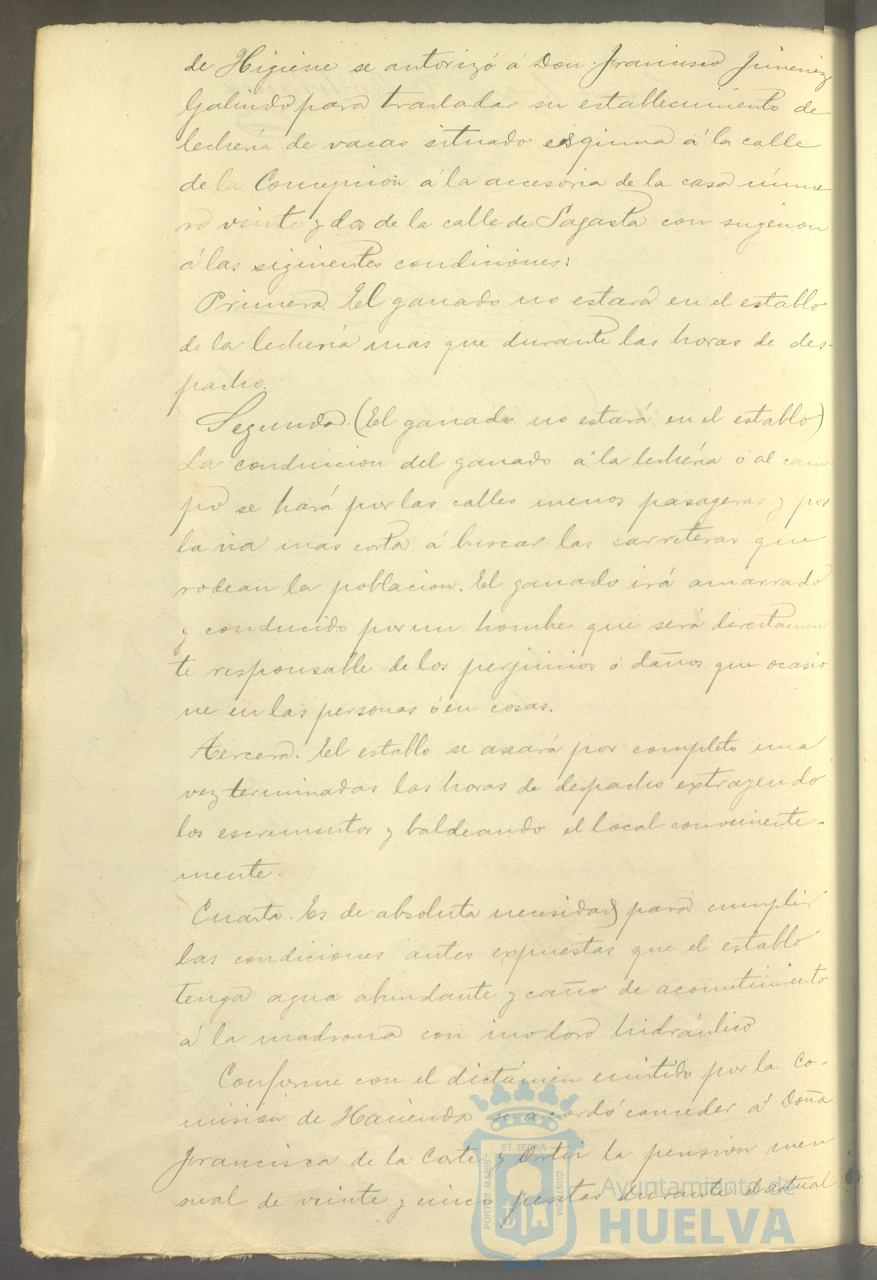 de Higiene se autorizó á Don Francisco Jimenez
Galindo para trasladar su establecimiento de
lecheria de vacas situado esquina á la calle
de la Concepcion á la accesoria de la casa núme
ro veinte y dos de la calle de Sagasta con sugecion
á las siguientes condiciones:
Primera. El ganado no estará en el establo
de la lecheria mas que durante las horas de des-
pacho.
Segunda. (El ganado no estará en el establo)
La conduccion del ganado á la lecheria ó al cam
po se hará por las calles menos pasageras y por
la via mas corta á buscar las carreteras que
rodean la poblacion. El ganado irá amarrado
y conducido por un hombre que será directamen
te responsable de los perjuicios ó daños que ocasio
ne en las personas ó en cosas.
Tercera. El establo se aseará por completo una
vez terminadas las horas de despacho extrayendo
los escrementos y baldeando el local conveniente-
mente.
Cuarta. Es de absoluta necesidad para cumplir
las condiciones antes expuestas que el establo
tenga agua abundante y caño de acometimiento
á la madrona con inodoro hidráulico
Conforme con el dictámen emitido por la Co-
mision de Hacienda se acordó conceder á Doña
Francisca de la Corte y Ortiz la pension men
sual de veinte y cinco pesetas durante el actual
PORTUS MARIS ET TERRÆ CUSTODIA
Ayuntamiento de
HUELVA